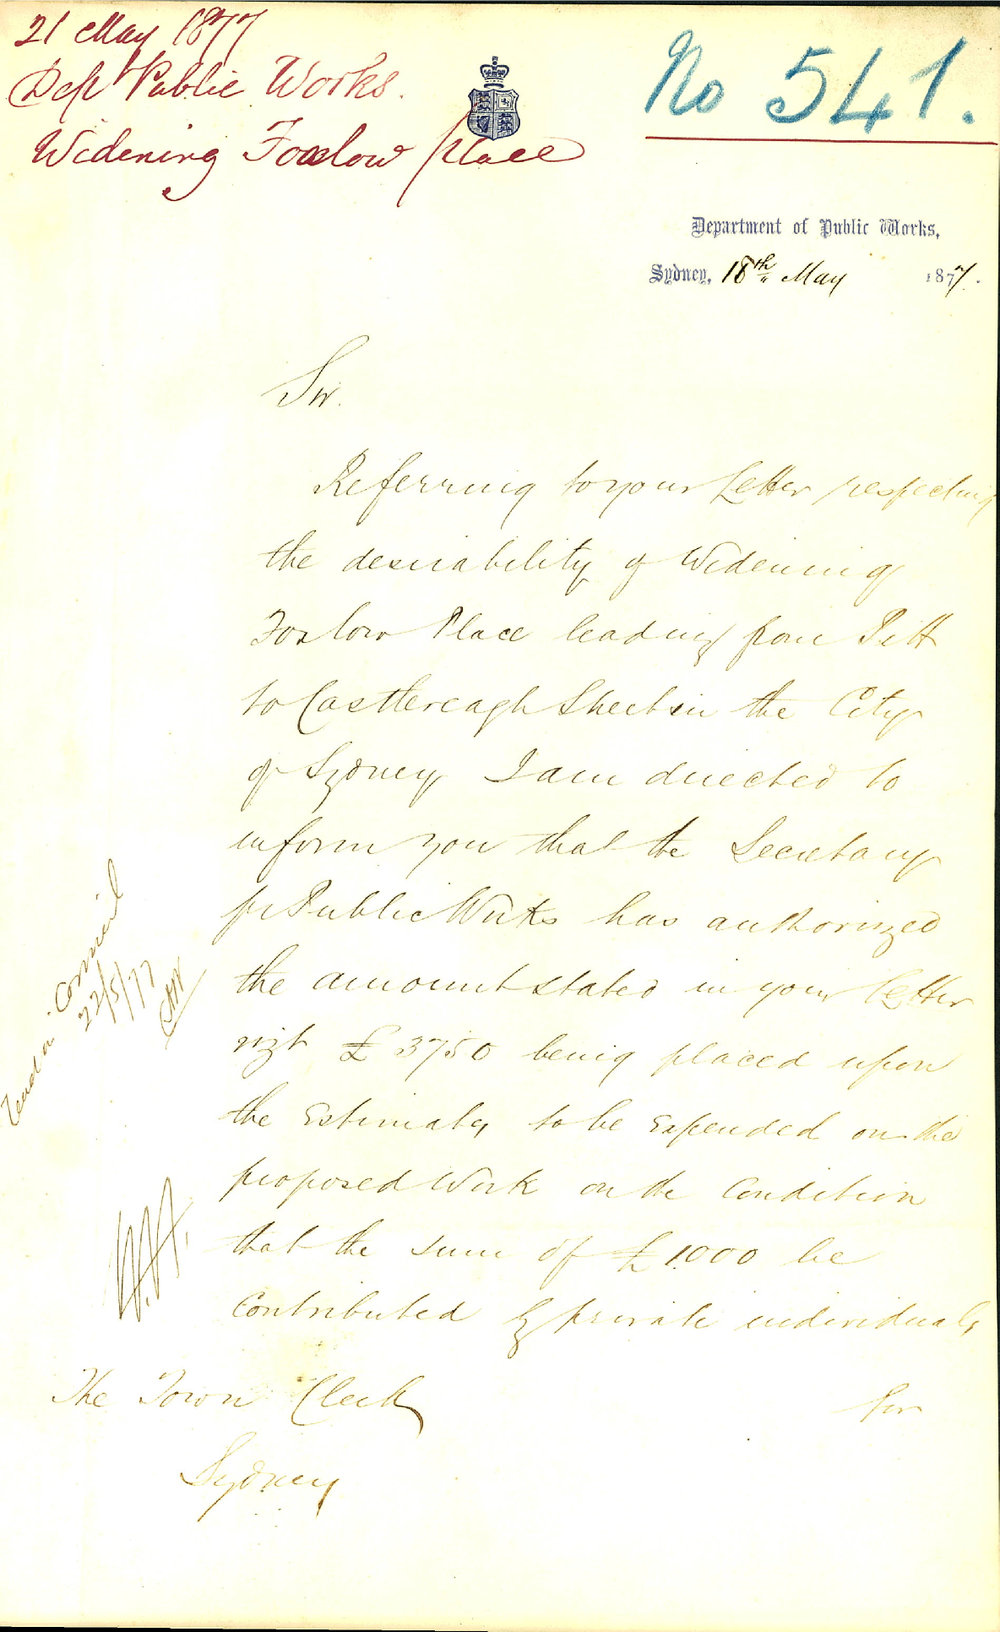 21 May 1877
Dept Public Works.
Widening Foxlow Place
No 541.
Department of Public Works,
Sydney, 18th May 1877.
Sir.
Referring to your Letter respecting
the desirability of Widening
Foxlow Place leading from Pitt
to Castlereagh Street in the City
of Sydney, I am directed to
inform you that the Secretary
for Public Works has authorized
the amount stated in your letter
vizt £3750 being placed upon
the Estimates, to be Expended on the
proposed Work on the Condition
that the sum of £1000 be
Contributed by private individuals
for
The Town Clerk
Sydney
Read in Council
22/5/77